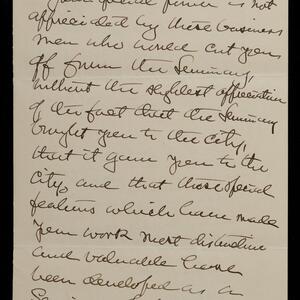 your special power is not
appreciated by these business
men who would cut you
off from the Seminary,
without the slightest appreciation
of the fact that the Seminary
brought you to the city,
that it gave you to the
city, and that those special
features which have made
your work most distinctive
and valuable have
been developed as a